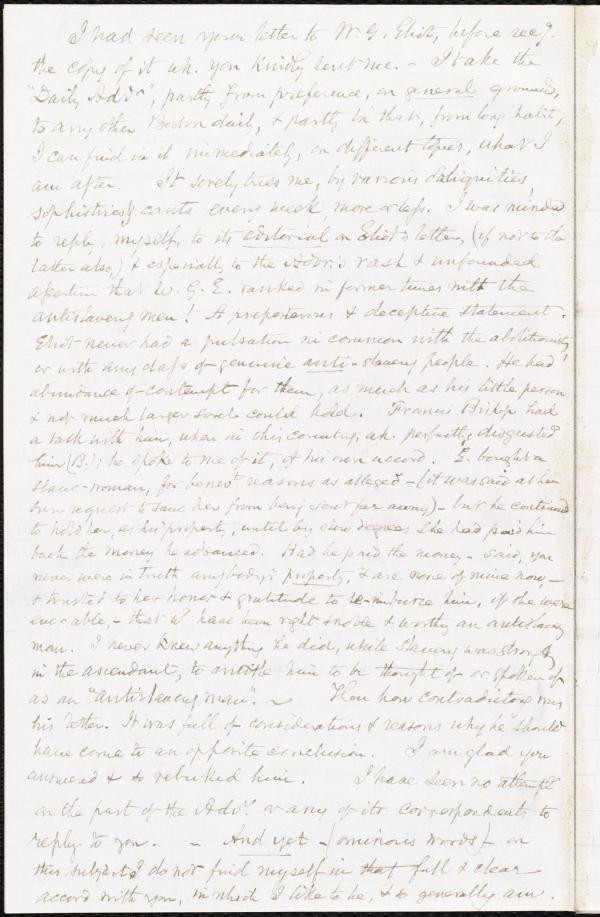 I had seen your letter to W. G. Eliot, before recg.
the copy of it wh. you kindly sent me. - I take the
"Daily Advr", partly from preference, on general ground,
to any other Boston daily, & partly in that, from long habit,
I can find in it immediately, on different topics, what I
am after. It sorely tries me, by various obliquities,
sophistries, & cants every week, more or less. I was minded
to reply, myself, to its editorial on Eliot's letter, (if not to the
latter also,) & especially to the Advr.'s rash & unfounded
assertion that W. G. E. ranked in former times with the
antislavery men! A preposterous & deceptive statement.
Eliot never had a pulsation in common with the abolitionists,
or with any class of genuine anti-slavery people. He had
abundance of contempt for them, as much as his little person
& not much larger soul could hold. Francis Bishop had
a talk with him, when in this country, wh. perfectly disgusted
him (B.); he spoke to me of it, of his own accord. E. bought a
slave-woman, for benevt reasons as alleged - (it was said at her
own request to save her from being sent far away) - but he continued
to hold her, as his property, until by slow degrees she had paid him
back the money he advanced. Had he paid the money - said, you
never were in truth anybody's property, & are none of mine now, -
& trusted to her honor & gratitude to re-imburse him, if she were
ever able, - that wd have been right & noble & worthy an antislavery
man. I never knew anything he did, while slavery was strongly
in the ascendant, to entitle him to be thought of or spoken of
as an "antislavery man". - Then how contradictory was
his letter. It was full of considerations & reasons why he should
have come to an opposite conclusion. I am glad you
answered & so rebuked him. I have seen no attempt
on the part of the Advr. or any of its correspondents to
reply to you. - And yet - (ominous words) - on
this subject I do not find myself in that full & clear
accord with you, in which I like to be, & so generally am.